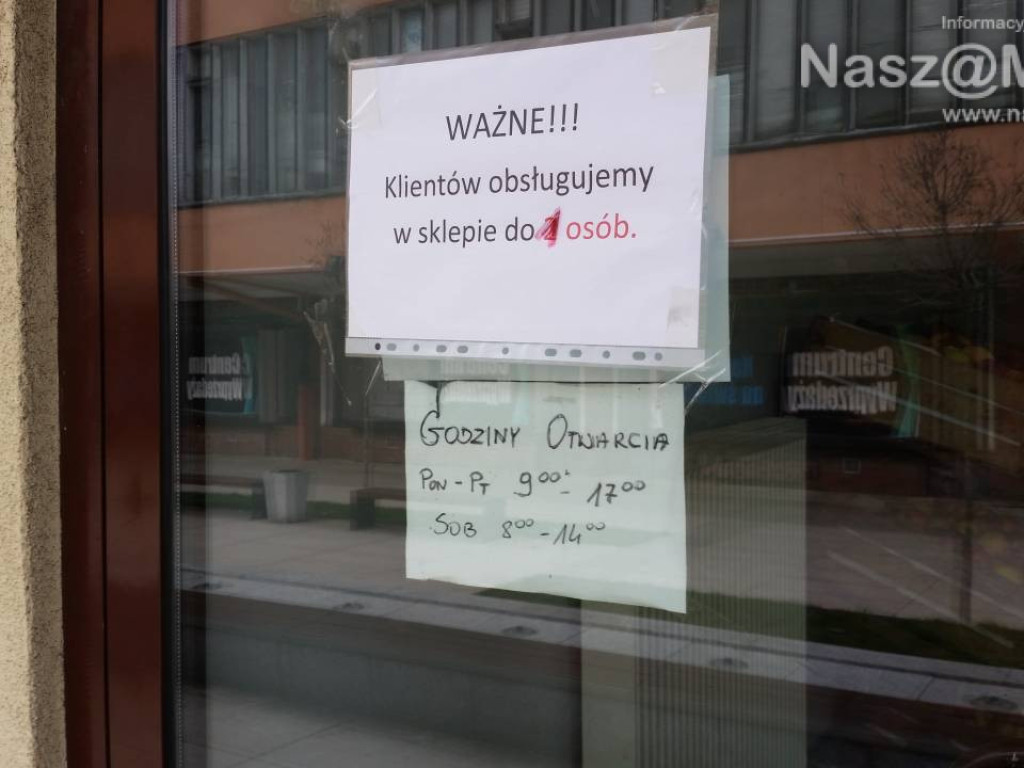 Informacy
Nasz@M
www.na
WAŻNE!!!
Klientów obsługujemy
w sklepie do 1 osób.
GODZINY OTWARCIA
PON - PT 9⁰⁰ - 17⁰⁰
SOB 8⁰⁰ - 14⁰⁰
Centrum
Wyprzedaży
Centrum
Wyprzedaży